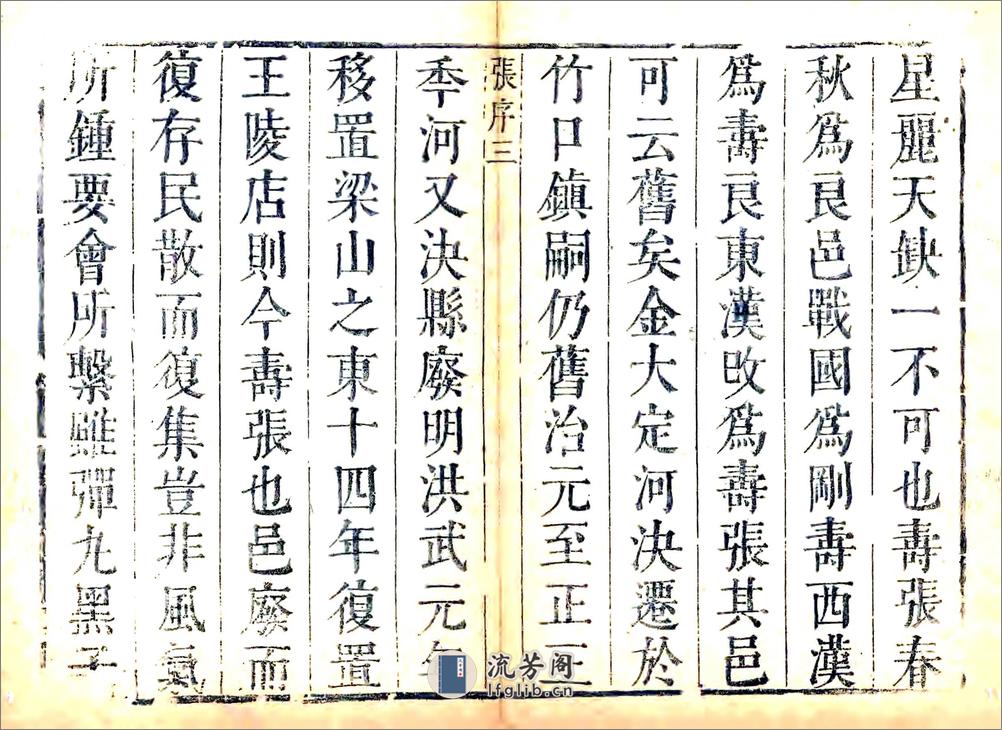 星麗天缺一不可也壽張春
秋爲良邑戰國爲剛壽西漢
爲壽良東漢改爲壽張其邑
可云舊矣金大定河決遷於
竹口鎮嗣仍舊治元至正
張序三
季河又決縣廢明洪武元年
移置梁山之東十四年復置
王陵店則今壽張也邑廢而
復存民散而復集豈非風氣
所鍾要會所繫雖彈丸黑子
流芳阁
lfglib.cn